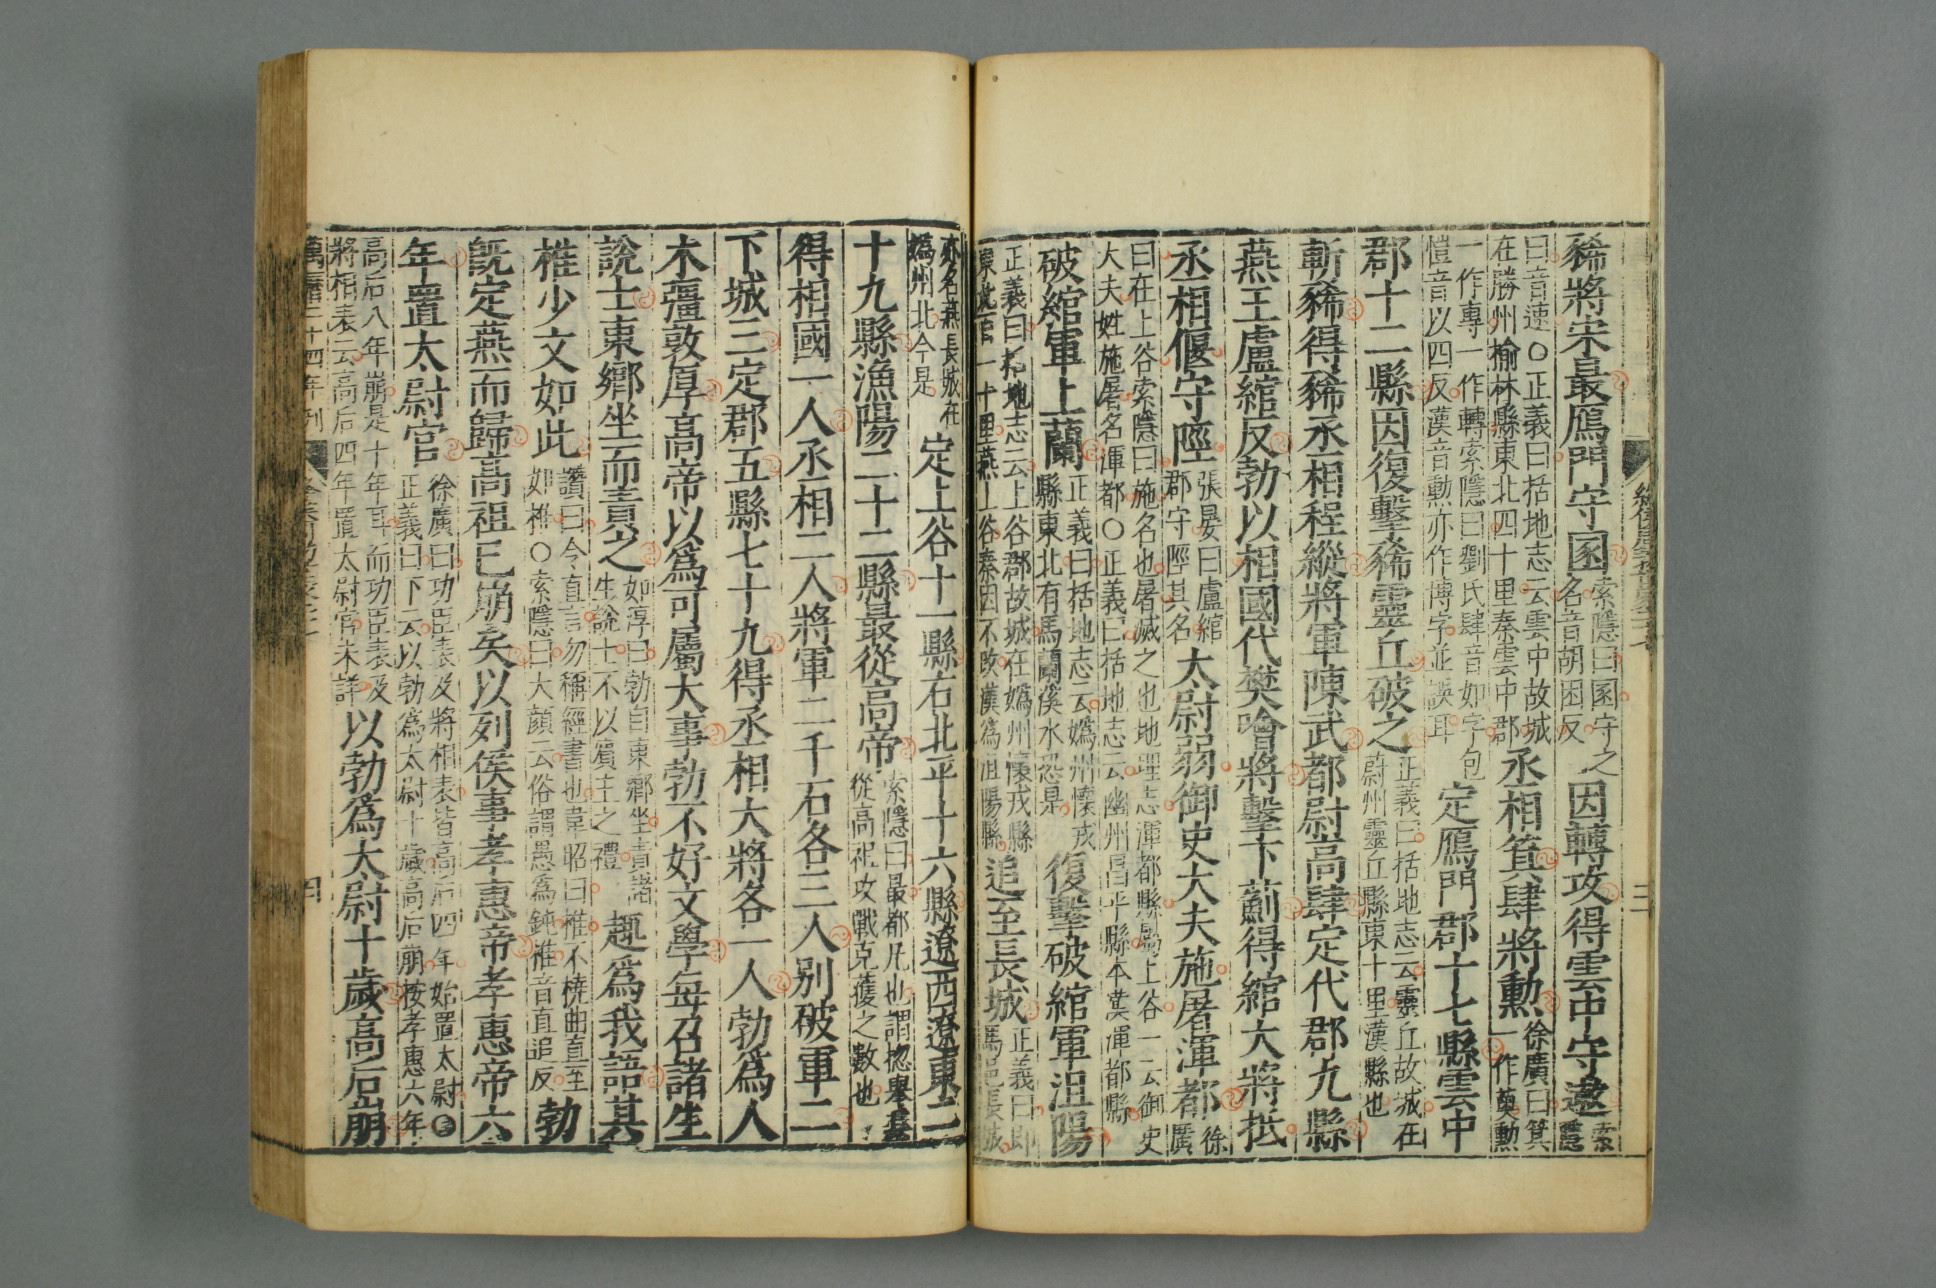 豨將宋最鴈門守圂索隱曰圂守之名音胡困反因轉攻得雲中守遬索隱
曰音速○正義曰括地志云雲中故城在勝州榆林縣東北四十里秦雲中郡丞相箕肆將勳徐廣曰箕一作奠勲
一作專一作轉索隱曰劉氏肆音如字包愷音以四反漢音勲亦作博字並誤耳定鴈門郡十七縣雲中
郡十二縣因復擊豨靈丘破之正義曰括地志云靈丘故城在蔚州靈丘縣東十里漢縣也
斬豨得豨丞相程縱將軍陳武都尉高肆定代郡九縣
燕王盧綰反勃以相國代樊噲將擊下薊得綰大將抵
丞相偃守陘張晏曰盧綰郡守陘其名太尉弱御史大夫施屠渾都徐廣
曰在上谷索隱曰施名也屠滅之也地理志渾都縣屬上谷一云御史大夫姓施屠名渾都○正義曰括地志云幽州昌平縣本漢渾都縣
破綰軍上蘭正義曰括地志云媯州懷戎縣東北有馬蘭溪水恐是復擊破綰軍沮陽
正義曰括地志云上谷郡故城在媯州懷戎縣東北一百一十里燕上谷秦因不改漢為沮陽縣追至長城正義曰即馬邑長城
亦名燕長城在媯州北今是定上谷十二縣右北平十六縣遼西遼東二
十九縣漁陽二十二縣最從高帝索隱曰最都凡也謂揔舉其從高祖攻戰克獲之數也
得相國一人丞相二人將軍二千石各三人別破軍二
下城三定郡五縣七十九得丞相大將各一人勃爲人
木彊敦厚高帝以爲可屬大事勃不好文學每召諸生
說士東鄉坐而責之如淳曰勃自東鄉坐責諸生說士不以賓主之禮趣爲我語其
椎少文如此讚曰今直言勿稱經書也韋昭曰椎不橈曲直至如椎○索隱曰大顏云俗謂愚為鈍椎音直追反勃
既定燕而歸高祖已崩矣以列侯事孝惠帝孝惠帝六
年置太尉官徐廣曰功臣表及將相表皆高后四年始置太尉○正義曰下云以勃為太尉十歲高后崩按孝惠六年
高后八年崩是十年耳而功臣表及將相表云高后四年置太尉官未詳以勃爲太尉十歲高后崩
萬曆二十四年刊